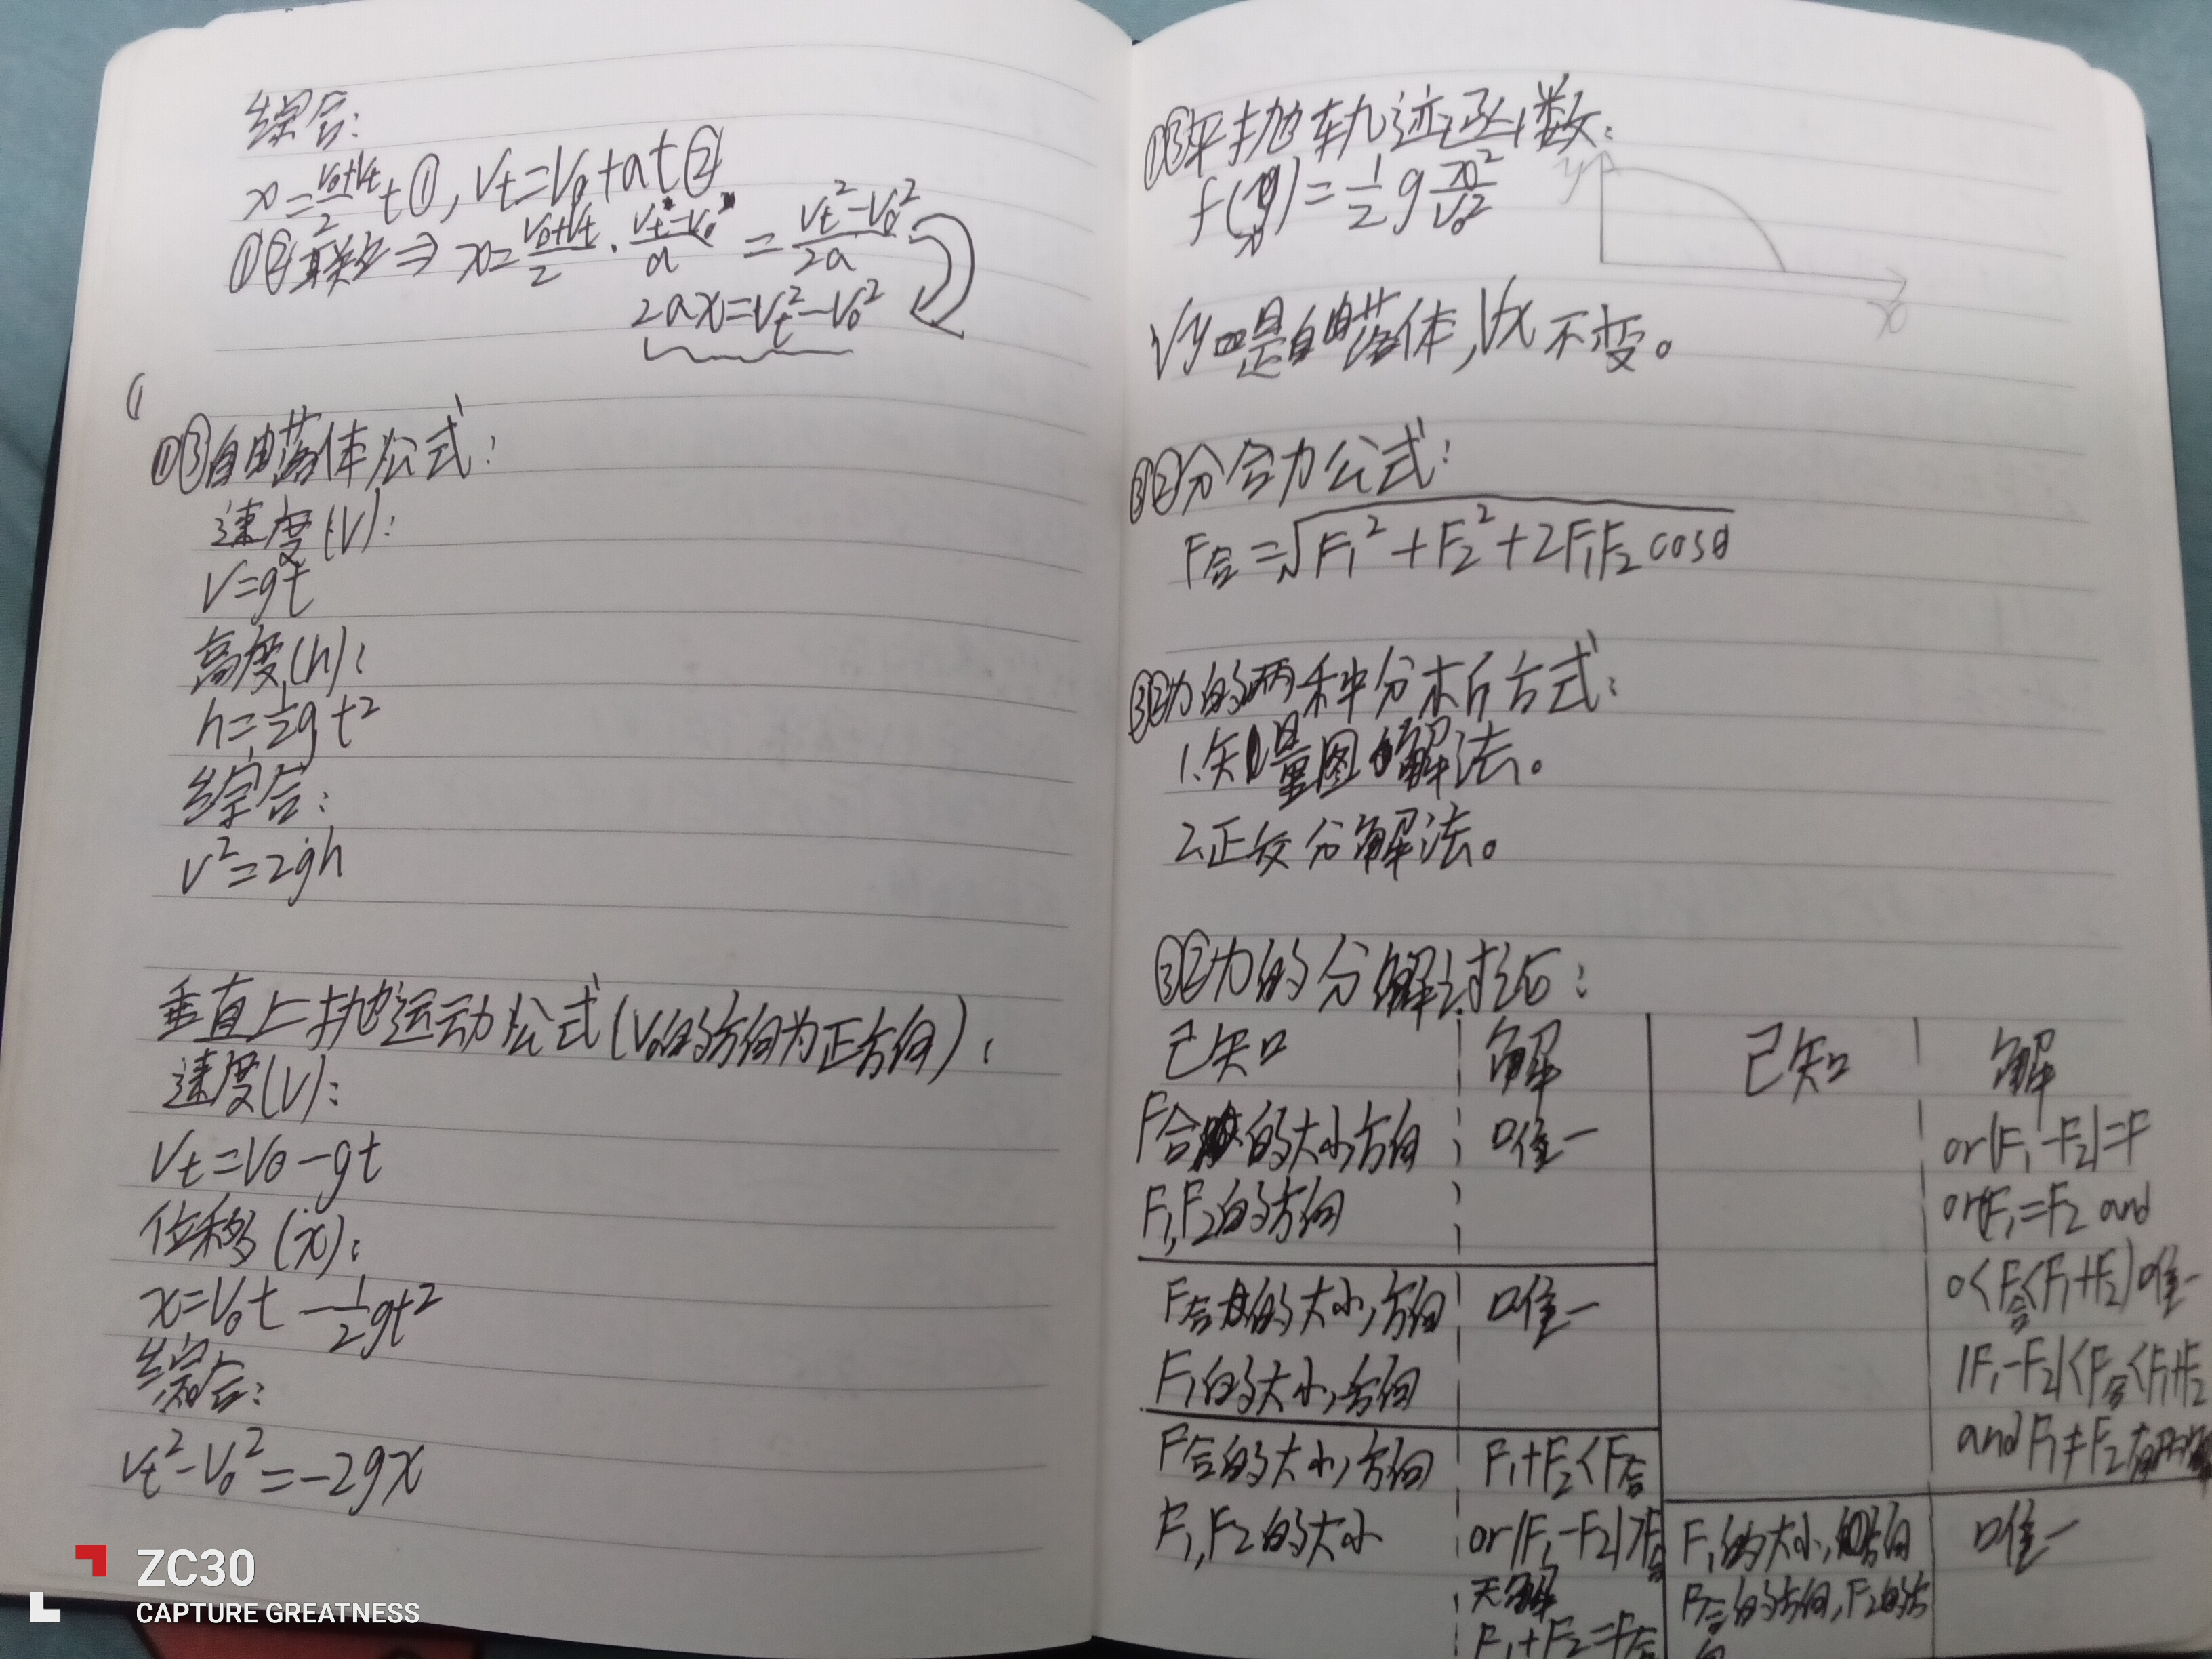 综合:
x=\frac{V₀+Vt}{2}t①,Vt=V₀+at②
①②联立⇒x=\frac{V₀+Vt}{2}·\frac{Vt-V₀}{a}=\frac{Vt²-V₀²}{2a}
2ax=Vt²-V₀²
①③自由落体公式:
速度(V):
V=gt
高度(h):
h=\frac{1}{2}gt²
综合:
V²=2gh
垂直上抛运动公式(V₀的方向为正方向):
速度(V):
Vt=V₀-gt
位移(x):
x=V₀t-\frac{1}{2}gt²
综合:
Vt²-V₀²=-2gx
①③平抛轨迹函数:
f(x)=\frac{1}{2}g\frac{x²}{V₀²}
y
x
Vy是自由落体,Vx不变。
③②分合力公式:
F合=√(F₁²+F₂²+2F₁F₂cosθ)
③②力的两种分析方式:
1.矢量图解法。
2.正交分解法。
③②力的分解讨论:
已知 解 已知 解
F合的大小,方向 唯一
F₁,F₂的方向
F合的大小,方向 唯一
F₁的大小,方向
F合的大小,方向 F₁+F₂<F合
F₁,F₂的大小 or|F₁-F₂|>F合
无解
F₁+F₂=F合
or|F₁-F₂|=F
or(F₁=F₂ and
0<F合<F₁+F₂)唯一
|F₁-F₂|<F合<F₁+F₂
and F₁≠F₂有两解
F₁的大小,方向 唯一
F合的方向,F₂的方
向
ZC30
CAPTURE GREATNESS